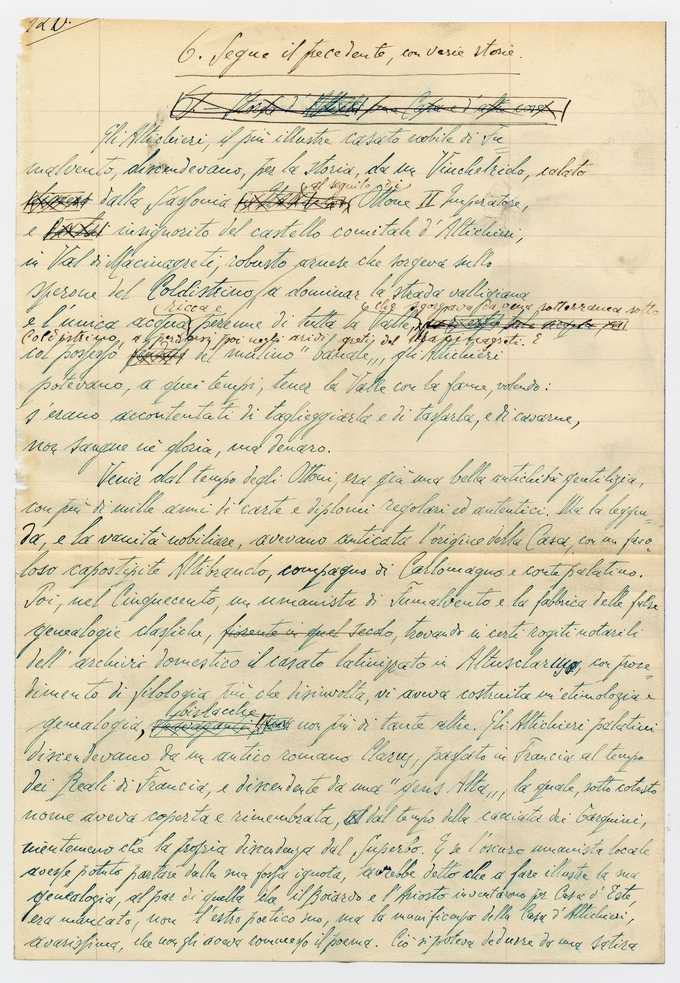 6. Segue il precedente, con varie storie.
Gli Altichieri, il più illustre casato nobile di Fu
malvento, discendevano, per la storia, da un Vinchelrido, calato
dalla Sassonia al seguito di Ottone II Imperatore,
e insignorito del castello comitale d'Altichieri,
in Val di Macinagreti, robusto arnese che sorgeva sullo
sperone del Coldistino, a dominar la strada valligiana
e l'unica acqua ricca e perenne di tutta la Valle, che sgorgava da vena sotterranea sotto
Coldistrino, a perdersi poi negli aridi greti del Macinagreti. E
col possesso del mulino "banale„, gli Altichieri
potevano, a quei tempi, tener la Valle con la fame, volendo:
s'erano accontentati di taglieggiarla e di tassarla, e di cavarne,
non sangue nè gloria, ma denaro.
Venir dal tempo degli Ottoni, era già una bella antichità gentilizia,
con più di mille anni di carte e diplomi regolari ed autentici. Ma la leggen-
da, e la vanità nobiliare, avevano anticata l'origine della Casa, con un favo-
loso capostipite Altibrando, compagno di Carlomagno e conte palatino.
Poi, nel Cinquecento, un umanista di Fumalvento e la fabbrica delle false
genealogie classiche, fiorente in quel secolo, trovando in certi rogiti notarili
dell'archivio domestico il casato latinizzato in Altusclarus, con proce-
dimento di filologia più che disinvolta, vi aveva costruita un'etimologia e
genealogia, bislacche non più di tante altre. Gli Altichieri palatini
discendevano da un antico romano Clarus, passato in Francia al tempo
dei Reali di Francia, e discendente da una "gens Alta„, la quale, sotto cotesto
nome aveva coperta e rimembrata, dal tempo della cacciata dei Tarquini,
nientemeno che la propria discendenza dal Superbo. E se l'oscuro umanista locale
avesse potuto parlare dalla sua fossa ignota, avrebbe detto che a fare illustre la sua
genealogia, al par di quella che il Boiardo e l'Ariosto inventarono per Casa d'Este,
era mancato, non l'estro poetico suo, ma la munificenza della Casa d'Altichieri,
avarissima, che non gli aveva commesso il poema. Ciò si poteva dedurre da una satira